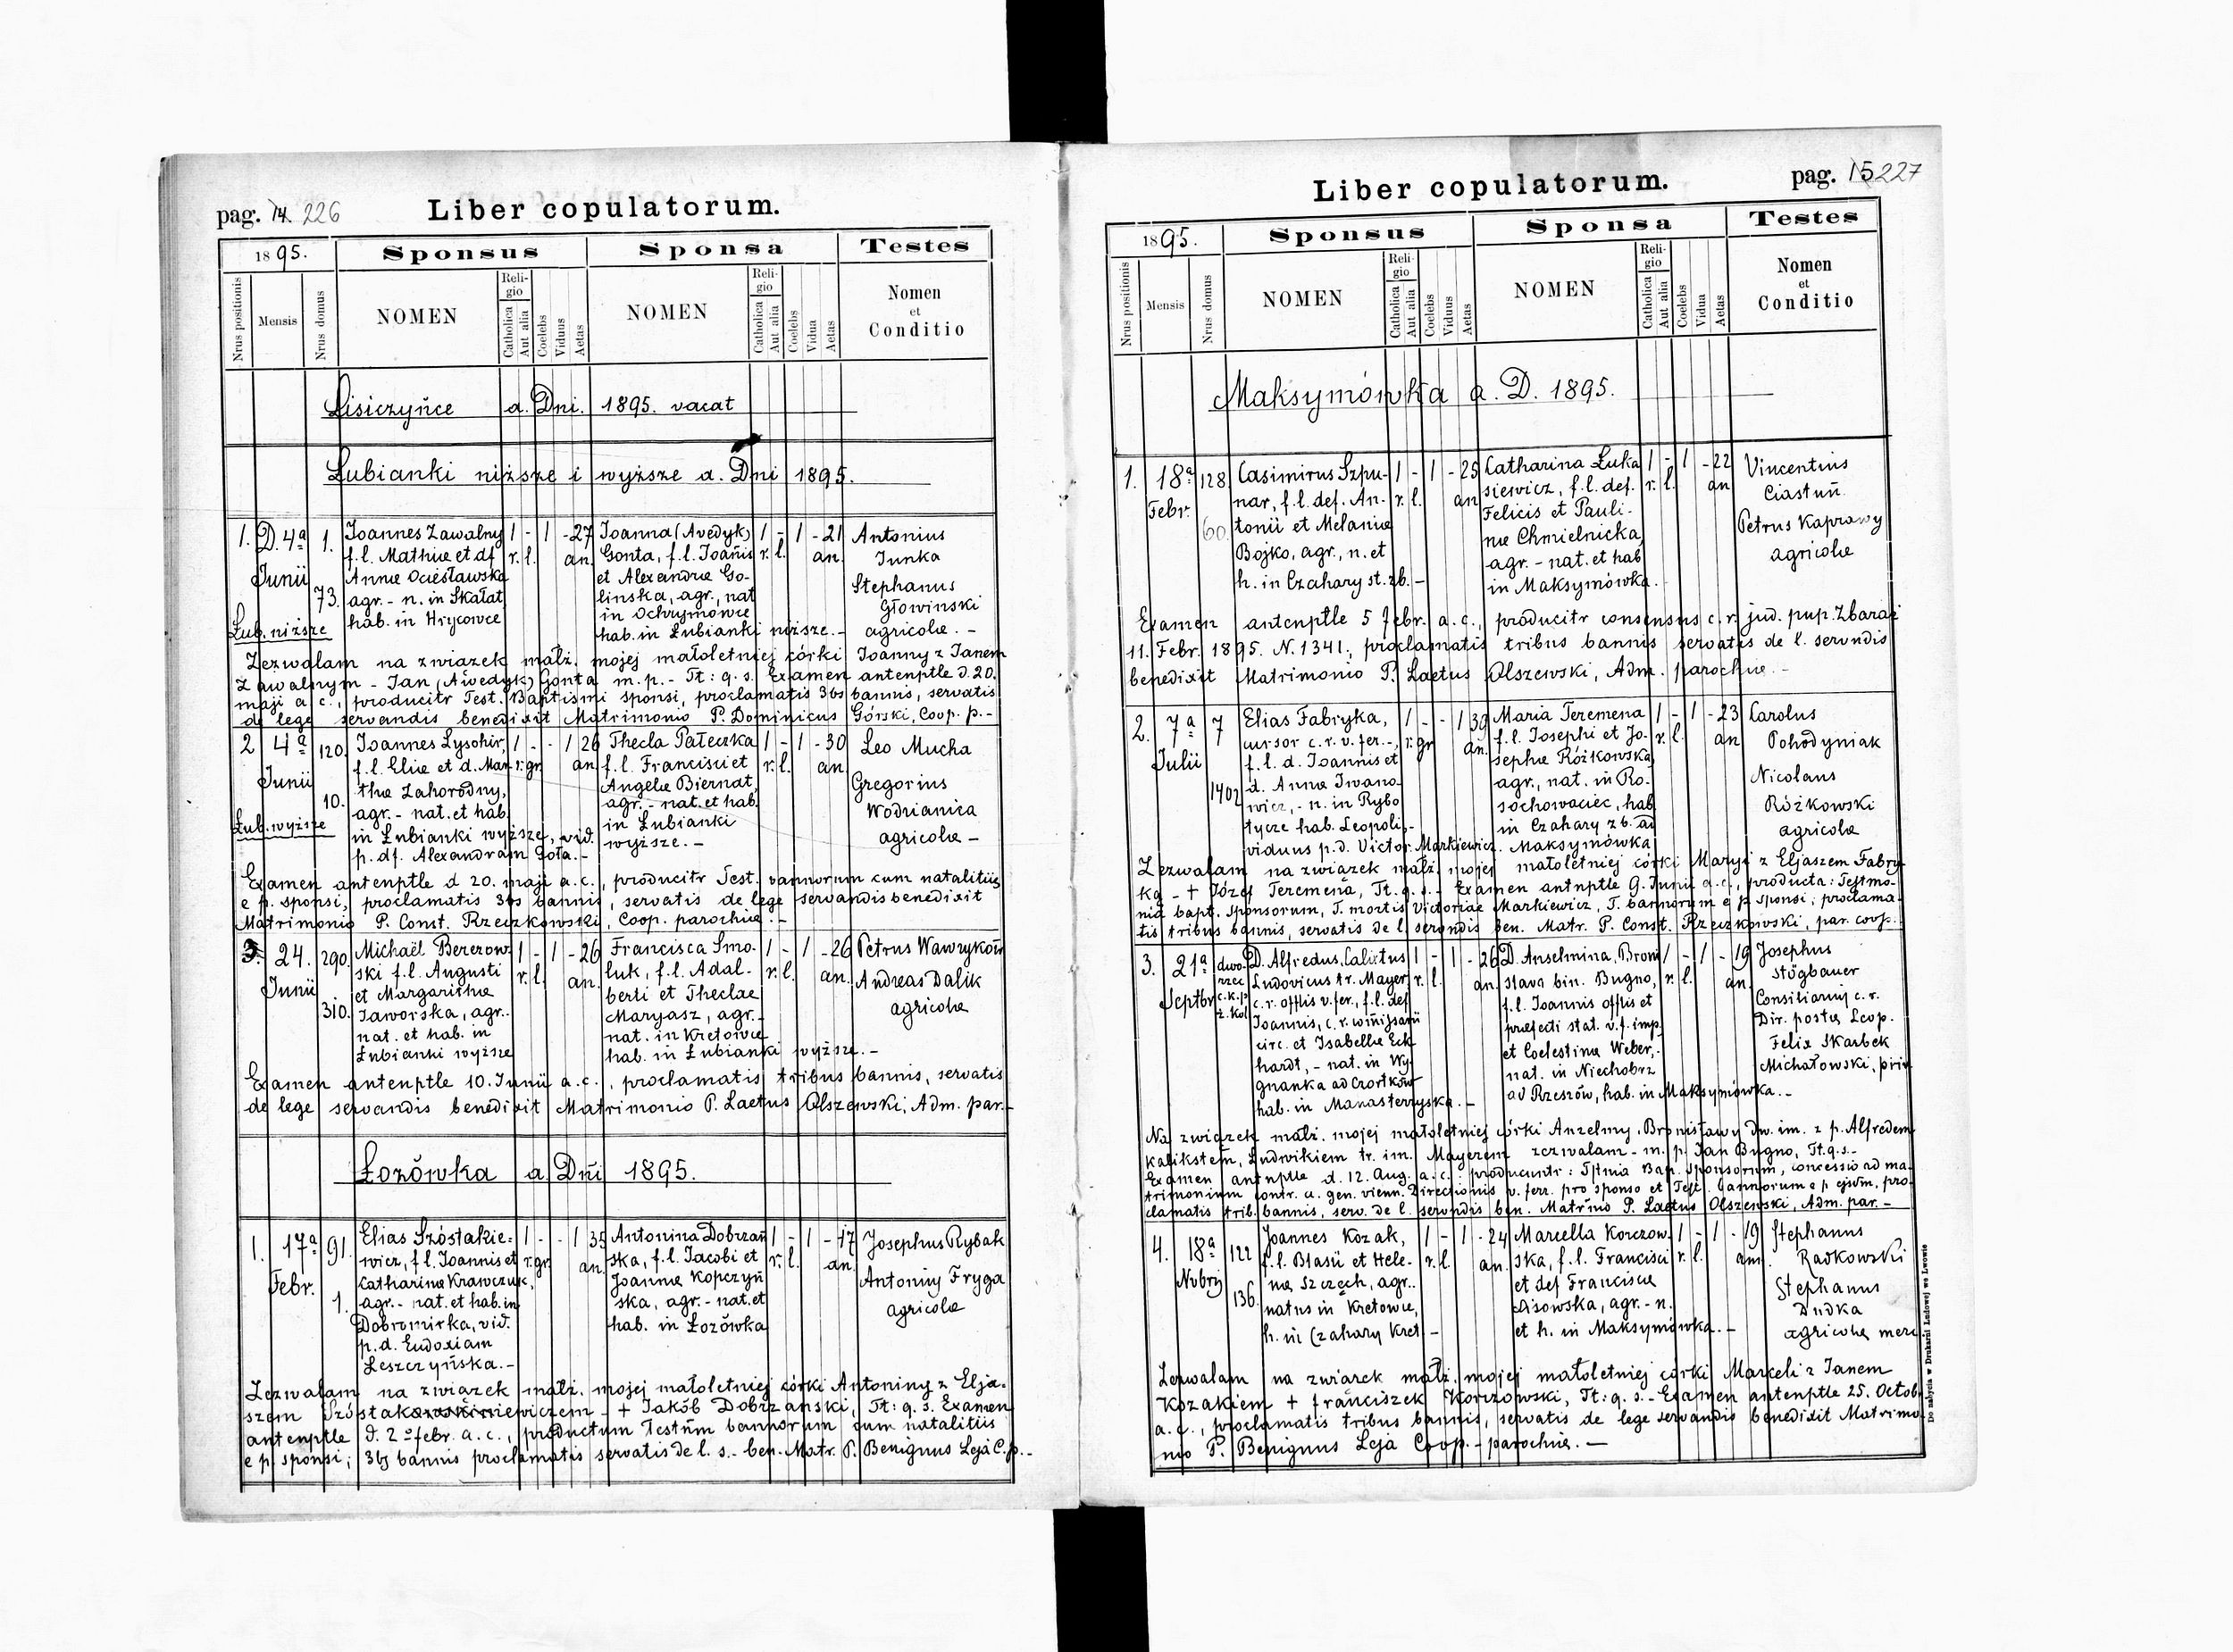 pag. 14. 226
Liber copulatorum.
1895.
Sponsus
Sponsa
Testes
Nrus positionis
Mensis
Nrus domus
NOMEN
Religio
Catholica
Aut alia
Coelebs
Viduus
Aetas
NOMEN
Religio
Catholica
Aut alia
Coelebs
Vidua
Aetas
Nomen
et
Conditio
Lisiczyńce a. Dni. 1895. vacat
Łubianki niższe i wyższe a. Dni 1895.
1. D. 4a
Junii
Łub. niższe
1.
73.
Joannes Zawalny
f. l. Mathiæ et df
Annæ Ociesławska
agr. - n. in Skałat
hab. in Hrycowce
1 - 1 - 27
r. l. an.
Joanna (Awedyk)
Gonta, f. l. Joañis
et Alexandræ Go-
linska, agr., nat
in Ochrymowce
hab. in Łubianki niższe. -
1 - 1 - 21
r. l. an.
Antonius
Junka
Stephanus
Głowinski
agricolæ. -
Zezwalam na związek małż. mojej małoletniej córki Joanny z Janem
Zawalnym - Jan (Awedyk) Gonta m. p. - Tt: q. s. Examen antenptle d. 20.
maji a. c., producitr Test. Baptismi sponsi, proclamatis 3bs bannis, servatis
de lege servandis benedixit Matrimonio P. Dominicus Górski, Coop. p. -
2 4a
Junii
Łub. wyższe
120.
10.
Joannes Lysohir,
f. l. Eliæ et d. Mar-
thæ Zahorodny,
agr. - nat. et hab.
in Łubianki wyższe, vid.
p. df. Alexandram Gola. -
1 - - 1 26
r. gr. an.
Thecla Pałeczka
f. l. Francisci et
Angelæ Biernat,
agr. - nat. et hab.
in Łubianki
wyższe. -
1 - 1 - 30
r. l. an.
Leo Mucha
Gregorius
Wodrianica
agricolæ -
Examen antenptle d 20. maji a. c., producitr Test. bannorum cum natalitiis
e p. sponsi, proclamatis 3bs bannis, servatis de lege servandis benedixit
Matrimonio P. Const. Rzeczkowski, Coop. parochiæ. -
3. 24.
Junii
290.
310.
Michaël Berezow-
ski f. l. Augusti
et Margarithæ
Jaworska, agr. -
nat. et hab. in
Łubianki wyższe
1 - 1 - 26
r. l. an.
Francisca Smo-
luk, f. l. Adal-
berti et Theclae
Maryasz, agr. -
nat. in Kretowce
hab. in Łubianki wyższe. -
1 - 1 - 26
r. l. an.
Petrus Wawryków
Andreas Dalik
agricolæ
Examen antenptle 10. Junii a. c., proclamatis tribus bannis, servatis
de lege servandis benedixit Matrimonio P. Laetus Olszewski, Adm. par. -
Łozówka a. Dni 1895.
1. 17a
Febr.
91.
1.
Elias Szóstakie-
wicz, f. l. Joannis et
Catharinæ Krawczuk,
agr. - nat. et hab. in
Dobromirka, vid.
p. d. Eudoxiam
Leszczyńska. -
1 - - 1 35
r. gr. an.
Antonina Dobrzań
ska, f. l. Jacobi et
Joannæ Kopczyń
ska, agr. - nat. et
hab. in Łozówka
1 - 1 - 17
r. l. an.
Josephus Rybak
Antonius Fryga
agricolæ
Zezwalam na związek małż. mojej małoletniej córki Antoniny z Elja-
szem Szóstakiewiczem - + Jakób Dobrzański, Tt: q. s. Examen
antenptle d. 2o febr. a. c., productum Testim bannorum cum natalitiis
e p. sponsi; 3bs bannis proclamatis servatis de l. s. - ben. Matr. P. Benignus Leja C. p. -
Liber copulatorum.
pag. 15 227
1895.
Sponsus
Sponsa
Testes
Nrus positionis
Mensis
Nrus domus
NOMEN
Religio
Catholica
Aut alia
Coelebs
Viduus
Aetas
NOMEN
Religio
Catholica
Aut alia
Coelebs
Vidua
Aetas
Nomen
et
Conditio
Maksymówka a. D. 1895.
1. 18a
Febr.
128
60.
Casimirus Szpu-
nar, f. l. def. An-
tonii et Melaniæ
Bojko, agr., n. et
h. in Czahary st. zb. -
1 - 1 - 25
r. l. an
Catharina Łuka
siewicz, f. l. def.
Felicis et Pauli-
næ Chmielnicka,
agr. - nat. et hab
in Maksymówka.
1 - 1 - 22
r. l. an
Vincentius
Ciastuń
Petrus Kaprawy
agricolæ
Examen antenptle 5 febr. a. c., producitr consensus c. r. jud. pup. Zbaraż
11. Febr. 1895. N. 1341., proclamatis tribus bannis servatis de l. servndis
benedixit Matrimonio P. Laetus Olszewski, Adm. parochiæ. -
2. 7a
Julii
7
1402
Elias Fabryka,
cursor c. r. v. fer. -,
f. l. d. Joannis et
d. Annæ Iwano
wicz, - n. in Rybo
tycze hab. Leopoli, -
viduus p. d. Victor. Markiewicz.
1 - - 1 39
r. gr an.
Maria Teremena
f. l. Josephi et Jo-
sephæ Różkowska,
agr., nat. in Ro-
sochowaciec, hab
in Czahary zb. ad
Maksymówka
1 - 1 - 23
r. l. an
Carolus
Pohodyniak
Nicolaus
Różkowski
agricolæ
Zezwalam na związek małż. mojej małoletniej córki Maryi z Eljaszem Fabry
ką - + Józef Teremena, Tt. q. s. - Examen antnptle 9. Junii a. c., producta: Testmo-
nia bapt. sponsorum, T. mortis Victoriae Markiewicz, T. bannorum e p. sponsi; proclama-
tis tribus bannis, servatis de l. servndis ben. Matr. P. Const. Rzeczkowski, par. coop.
3. 21a
Septbr
dwo-
rzec
c. k. p.
ż. kol
D. Alfredus, Calixtus
Ludovicus tr. Mayer
c. r. offlis v. fer., f. l. def
Joannis, c. r. comissarii
circ. et Isabellæ Eck
hardt, - nat. in Wy
gnanka ad Czortków
hab. in Manasterzyska. -
1 - 1 - 26
r. l. an.
D. Anselmina, Broni
slava bin. Bugno,
f. l. Joannis offlis et
præfecti stat. v. f. imp.
et Coelestinæ Weber, -
nat. in Niechobrz
ad Rzeszów, hab. in Maksymówka. -
1 - 1 - 19
r. l. an.
Josephus
Stögbauer
Consiliarius c. r.
Dir. postæ Leop.
Felix Skarbek
Michałowski, priv
Na związek małż. mojej małoletniej córki Anzelmy, Bronisławy dw. im. z p. Alfredem
Kalikstem, Ludwikiem tr. im. Mayerem zezwalam - m. p. Jan Bugno, Tt. q. s. -
Examen antnptle d. 12. Aug. a. c.: producuntr: Tstnia Bap. Sponsorum, concessio ad ma-
trimonium contr. a. gen. vienn. Directionis v. ferr. pro sponso et Test. bannorum e p. ejsdm, pro-
clamatis trib. bannis, serv. de l. servndis ben. Matr̃nio P. Laetus Olszewski, Adm. par. -
4. 18a
Nvbris
122
136.
Joannes Kozak,
f. l. Blasii et Hele-
næ Szczech, agr. -
natus in Kretowce,
h. in Czahary Kret -
1 - 1 - 24
r. l. an.
Marcella Korczow-
ska, f. l. Francisci
et def Franciscæ
Lisowska, agr. - n.
et h. in Maksymówka. -
1 - 1 - 19
r. l. ann.
Stephanus
Radkowski
Stephanus
Dudka
agricolæ
Zezwalam na związek małż. mojej małoletniej córki Marceli z Janem
Kozakiem + franciszek Korczowski, Tt: q. s. - Examen antenptle 25. Octobr
a. c., proclamatis tribus bannis, servatis de lege servandis benedixit Matrimo-
nio P. Benignus Leja Coop. - parochiæ. -
Do nabycia w Drukarni Ludowej we Lwowie